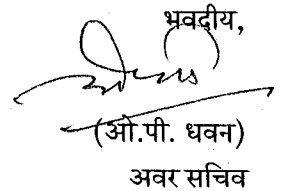 भवदीय,
(ओ.पी. धवन)
अवर सचिव